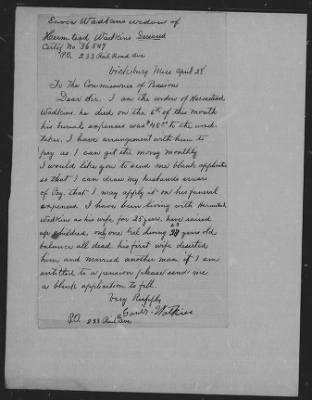 Watkins widow of
Watkins Deceased
Certif No 36547
P.O. 233 Rail Road Ave
Vicksburg Miss April 28
To The Commissioner of Pensions
Dear Sir. I am the widow of
Watkins he died on the 6th of this month
his burial expenses was $45 00 to the under
taker. I have arrangement with him to
pay as I can get the money monthly
I would like you to send me blank application
so that I can draw my husbands
of Pay. that I may apply it on his funeral
expenses. I have been living with
Watkins as his wife for 25 years. have raised
children, only one living years old
balance all dead his first wife deserted
him and married another man if I am
entitled to a pension please send me
a blank application to fill.
Very
Watkins
P.O. 233